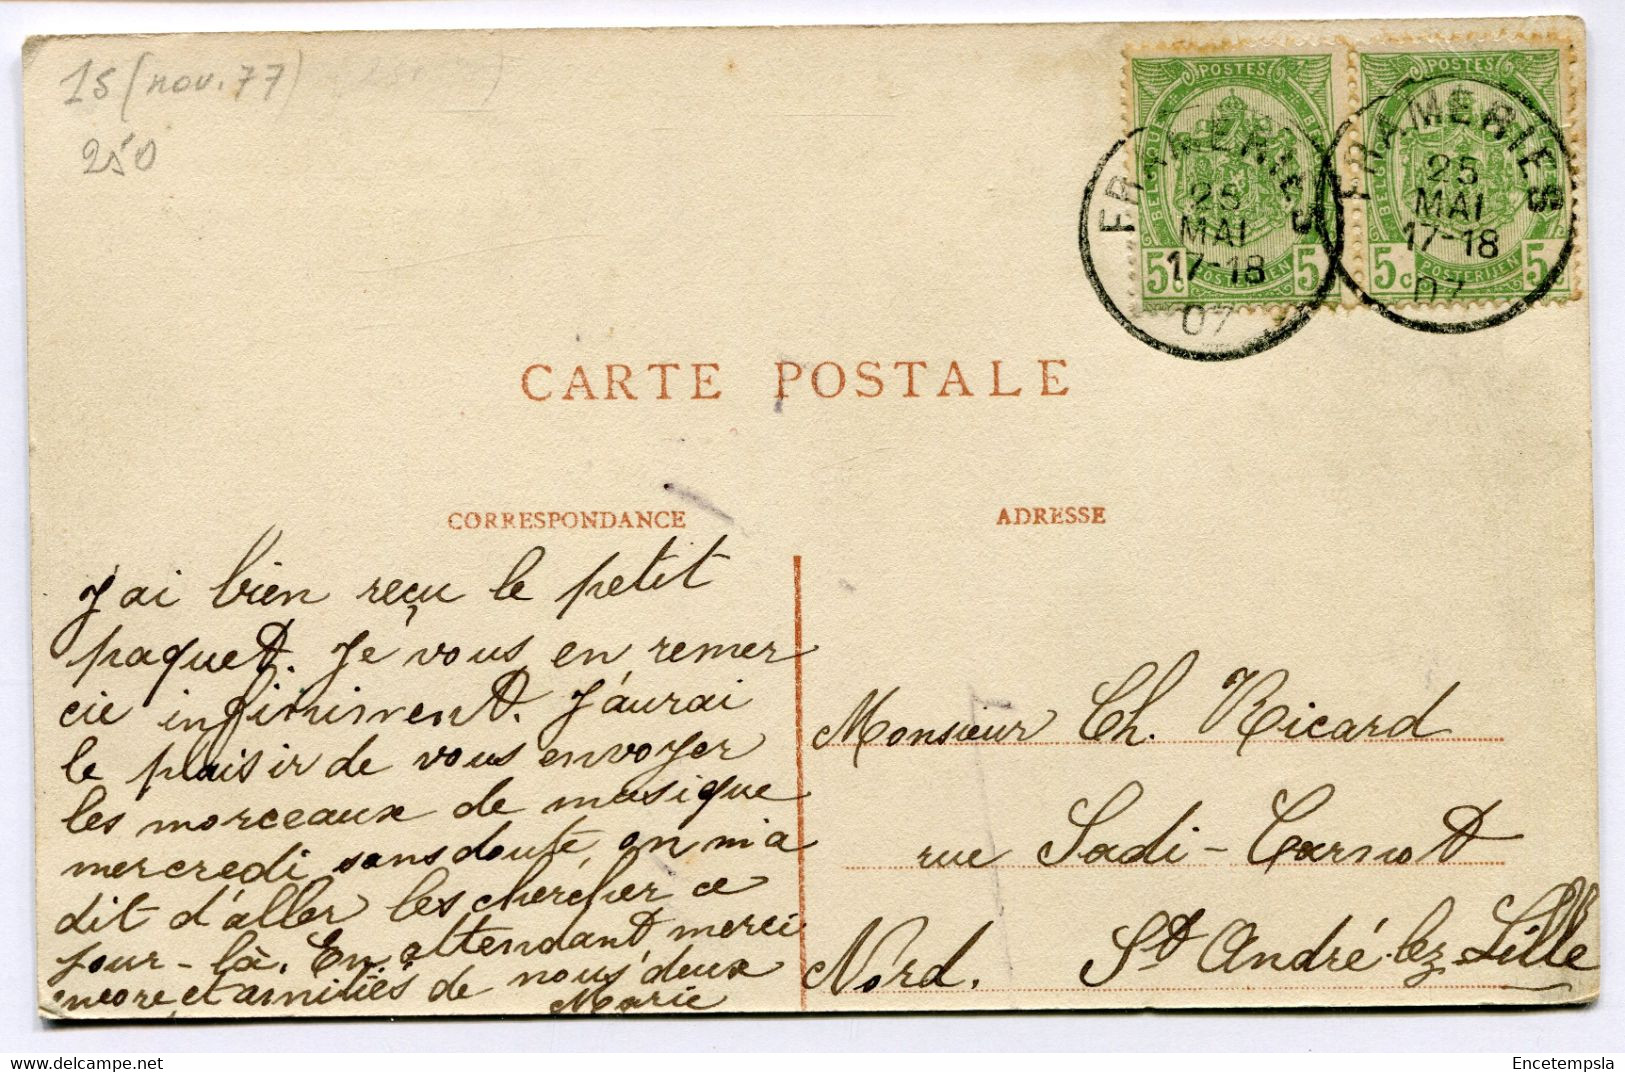 15 (nov. 77)
250
POSTES
BELGIQUE
BELGIË
5c 5c
POSTERIJEN
FRAMERIES
25
MAI
17-18
07
POSTES
BELGIQUE
5c 5c
POSTERIJEN
FRAMERIES
25
MAI
17-18
07
CARTE POSTALE
CORRESPONDANCE
ADRESSE
J'ai bien reçu le petit
paquet. Je vous en remer
cie infiniment. J'aurai
le plaisir de vous envoyer
les morceaux de musique
mercredi sans doute, on m'a
dit d'aller les chercher ce
jour-là. En attendant merci
encore et amitiés de nous deux
Marie
Monsieur Ch. Ricard
rue Sadi-Carnot
St André-lez-Lille
Nord.
Encetempsla